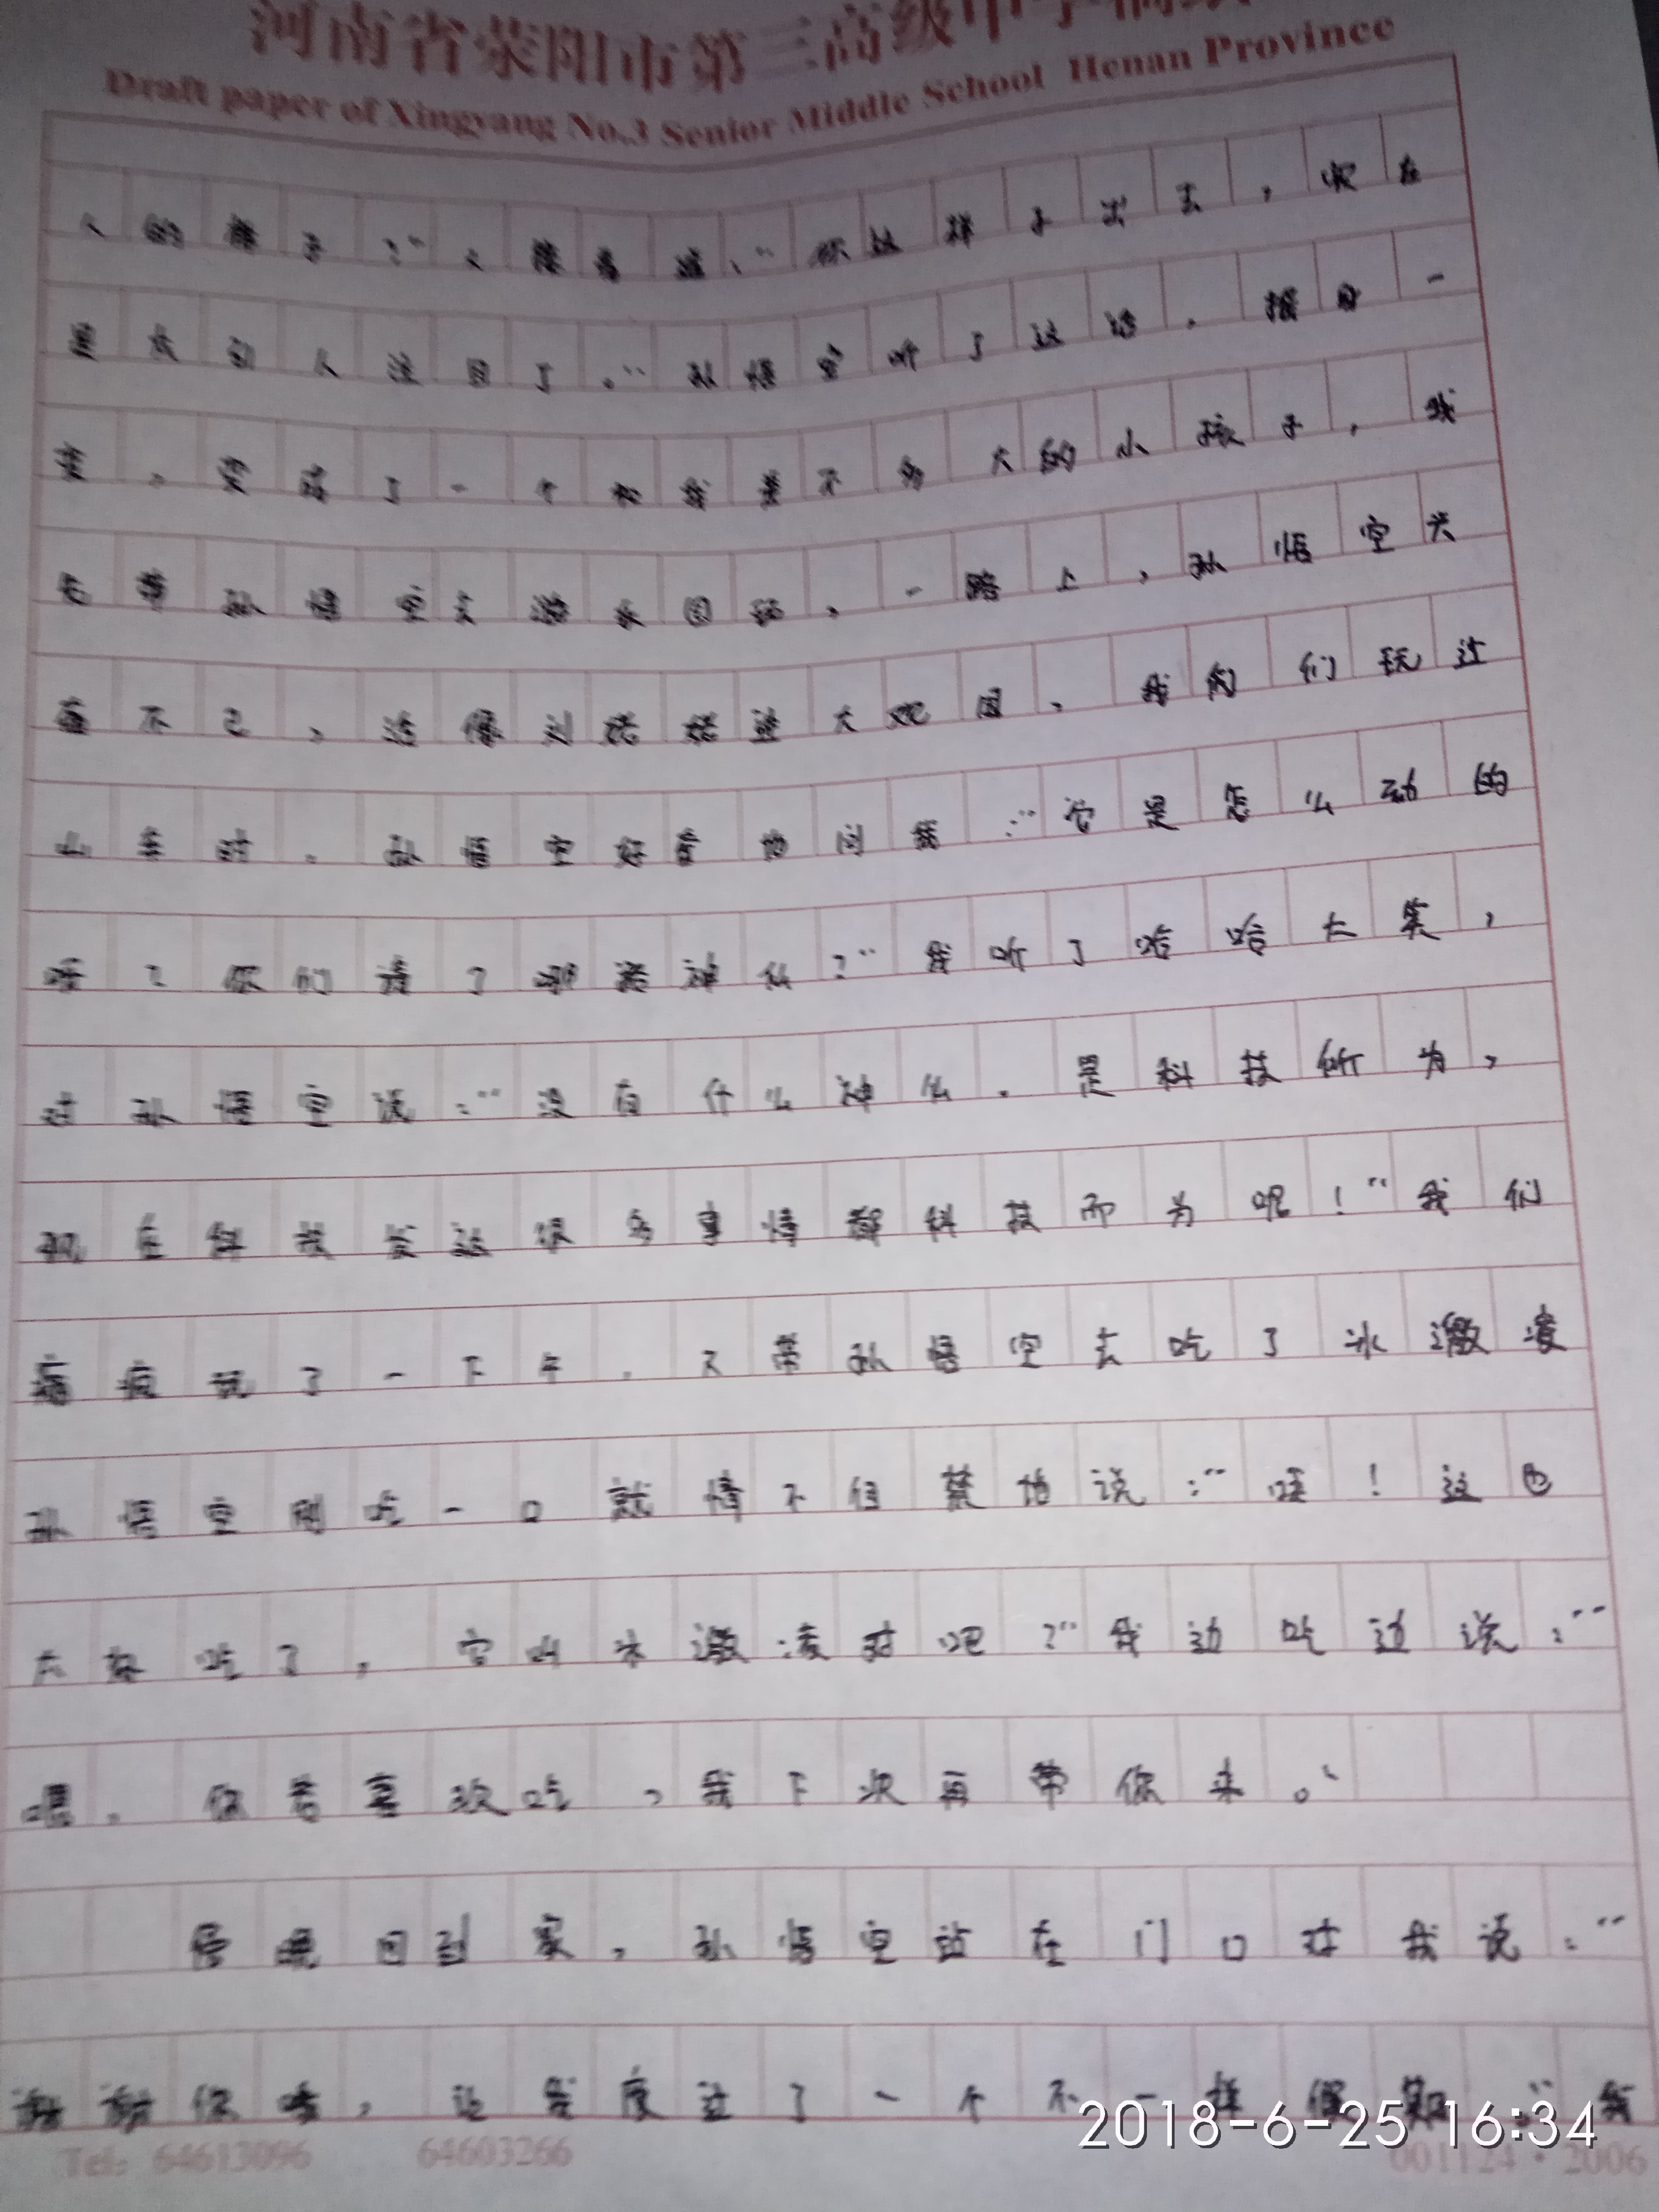 河南省荥阳市第三高级中学
Draft paper of Xingyang No.3 Senior Middle School Henan Province
人的样子?”我道:“你这样子出去,实在
是太引人注目了。”孙悟空听了这话,摇身一
变,变成了一个和我差不多大的小孩子,我
带孙悟空去游乐园玩,一路上,孙悟空兴
奋不已,活像刘姥姥进大观园,我们玩过
山车时,孙悟空好奇地问我:“它是怎么动的
呀?你们请了哪路神仙?”我听了哈哈大笑,
对孙悟空说:“没有什么神仙,是科技所为,
现在科技发达很多事情都科技而为呢!”我们
疯疯玩了一下午,又带孙悟空去吃了冰激凌
孙悟空刚吃一口就情不自禁地说:“哇!这也
太好吃了,它叫冰激凌对吧?”我边吃边说:“
嗯,你若喜欢吃,我下次再带你来。”
傍晚回到家,孙悟空站在门口对我说:“
谢谢你,让我度过了一个不一样假期。”我
2018-6-25 16:34
Tel: 64613096 64603266
001124·2006